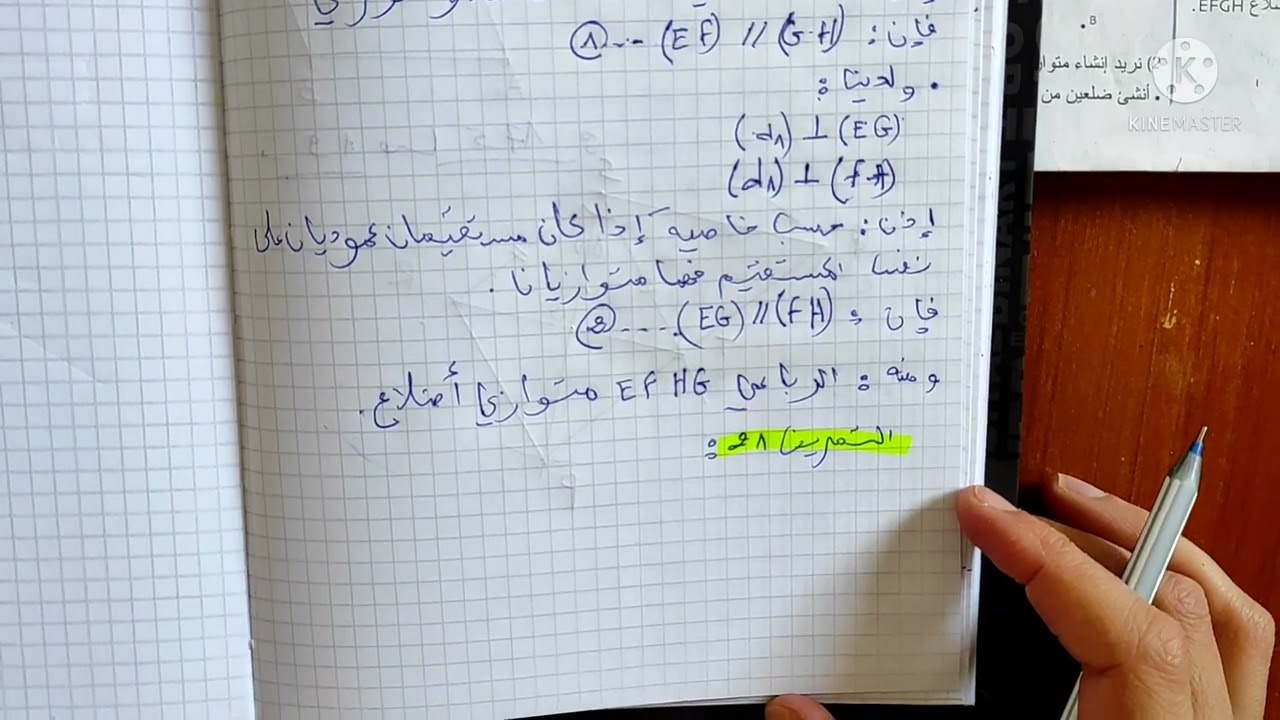 فإن : (EF) // (GH) --- ①
. ولدينا :
(d1) ⊥ (EG)
(d1) ⊥ (FH)
إذن : حسب خاصية إذا كان مستقيمان عموديان على
نفس المستقيم فهما متوازيانا .
فإن : (EG) // (FH) .... ②
ومنه : الرباعي EFHG متوازي أضلاع.
التمرين 21 :
EFGH.
B
2) نريد إنشاء متواز
. أنشئ ضلعين من
K
KINEMASTER